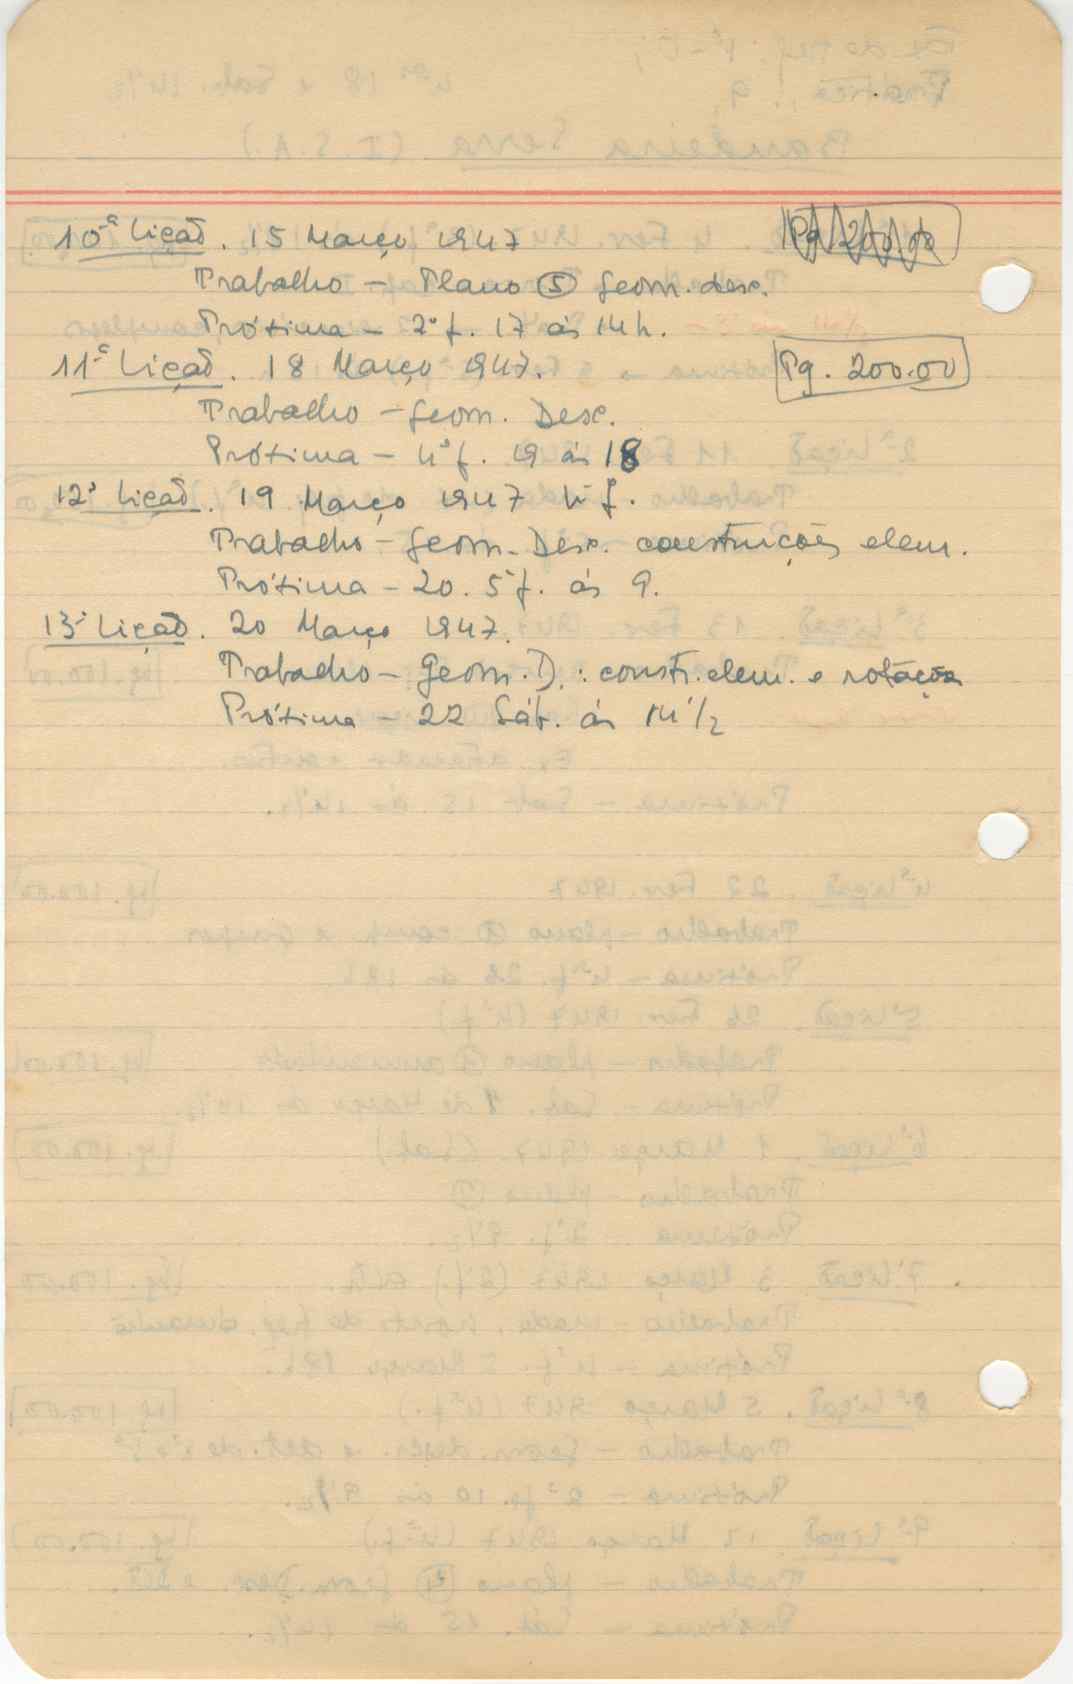 10ª Lição. 15 Março 1947 Pg 200.00
Trabalho – Plano ⑤ Geom. desc.
Próxima – 2ª f. 17 às 14h.
11ª Lição. 18 Março 1947. Pg. 200.00
Trabalho – Geom. Desc.
Próxima – 4ª f. 19 às 18
12ª Lição. 19 Março 1947 4ª f.
Trabalho – Geom. Desc. construções elem.
Próxima – 20. 5ª f. às 9.
13ª Lição. 20 Março 1947.
Trabalho – Geom. D. : constr. elem. e rotações
Próxima – 22 Sáb. às 14 1/2